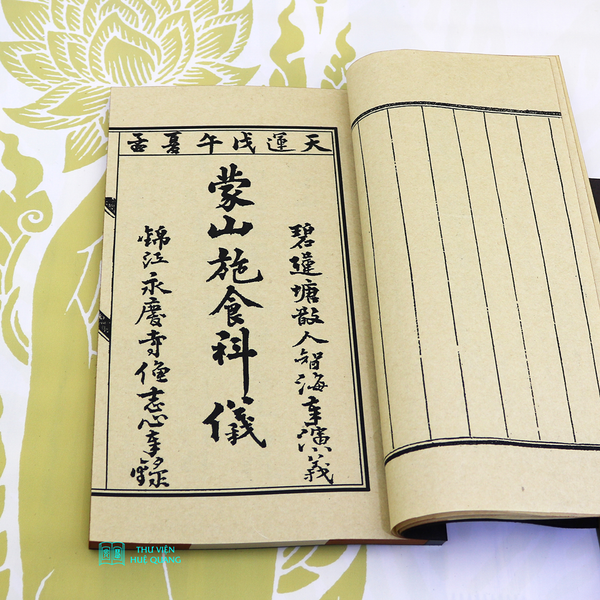 天運戊午夏孟
碧蓮塘散人智海奉演義
蒙山施食科儀
錦江永慶寺僧志心奉錄
THƯ VIỆN
HUỆ QUANG